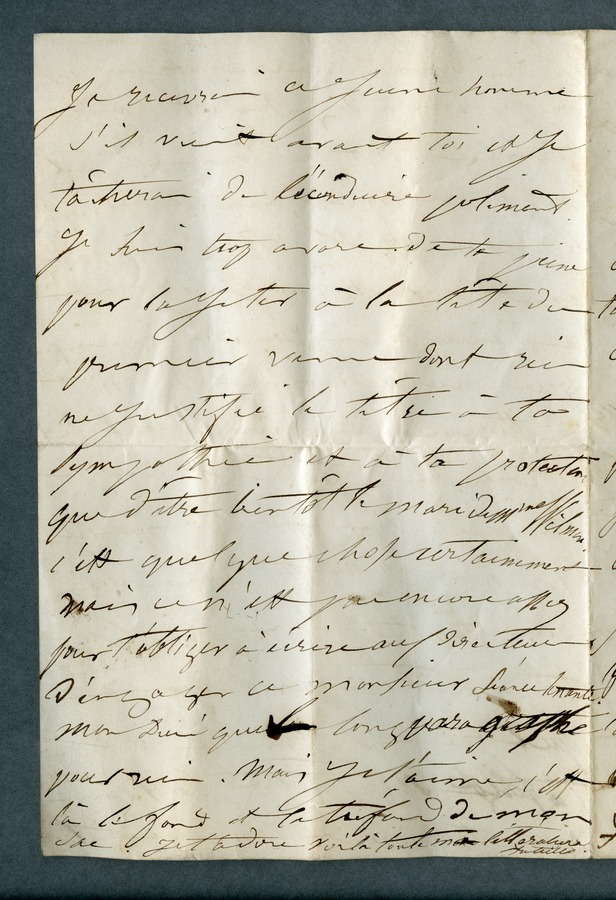 Je recevrai ce jeune homme
s'il vient avant toi et je
tâcherai de l'éconduire poliment.
Je suis trop avare de ta peine
pour la jeter à la tête du
premier venu dont rien
ne justifie le titre à ta
sympathie et à ta protection
que d'être bientôt le mari de
c'est quelque chose certainement
mais ce n'est pas encore assez
pour t'obliger à écrire au directeur
d'engager ce monsieur séance tenante.
mon Dieu quel long paragraphe
pour rien. Mais je t'aime, c'est
là le fond et le tréfond de mon
sac. Je t'adore voilà toute ma littérature